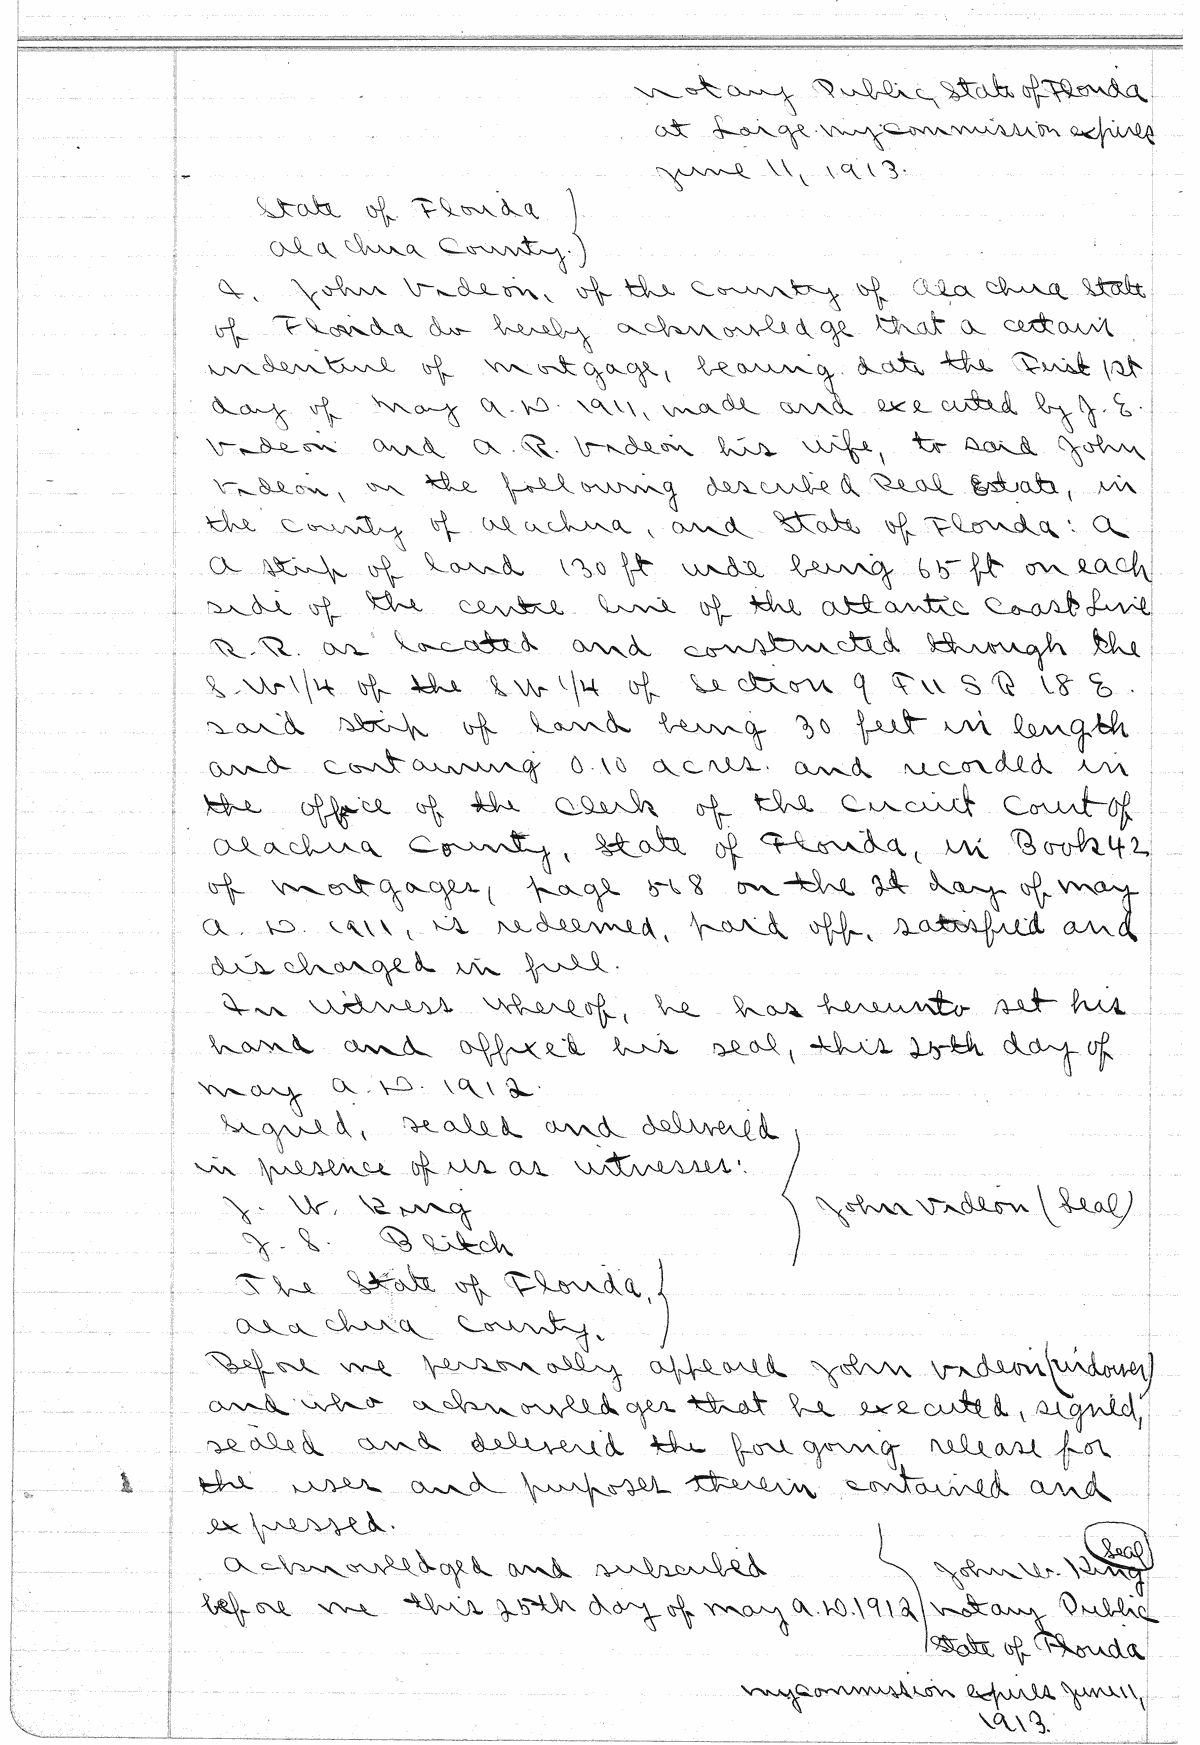 Notary Public, State of Florida
at Large. My commission expires
June 11, 1913.
State of Florida
Alachua County.
I, John Videon, of the County of Alachua State
of Florida do hereby acknowledge that a certain
indenture of mortgage, bearing date the First 1st
day of May A.D. 1911, made and executed by J. E.
Videon and A. R. Videon his wife, to said John
Videon, on the following described Real Estate, in
the County of Alachua, and State of Florida: A
A strip of land 130 ft wide being 65 ft on each
side of the centre line of the Atlantic Coast Line
R.R. as located and constructed through the
S.W 1/4 of the S W 1/4 of Section 9 T 11 S R 18 E.
said strip of land being 30 feet in length
and containing 0.10 acres. and recorded in
the office of the Clerk of the Circuit Court of
Alachua County, State of Florida, in Book 42
of mortgages, page 568 on the day of May
A. D. 1911, is redeemed, paid off, satisfied and
discharged in full.
In witness whereof, he has hereunto set his
hand and affixed his seal, this 25th day of
May A.D. 1912.
Signed, sealed and delivered
in presence of us as witnesses:
J. W. King
John Videon (Seal)
J. S. Blitch
The State of Florida,
Alachua County.
Before me personally appeared John Videon (widower)
and who acknowledges that he executed, signed,
sealed and delivered the foregoing release for
the uses and purposes therein contained and
expressed.
Seal
Acknowledged and subscribed John W. King
before me this 25th day of May A.D. 1912 Notary Public
State of Florida
My commission expires June 11,
1913.